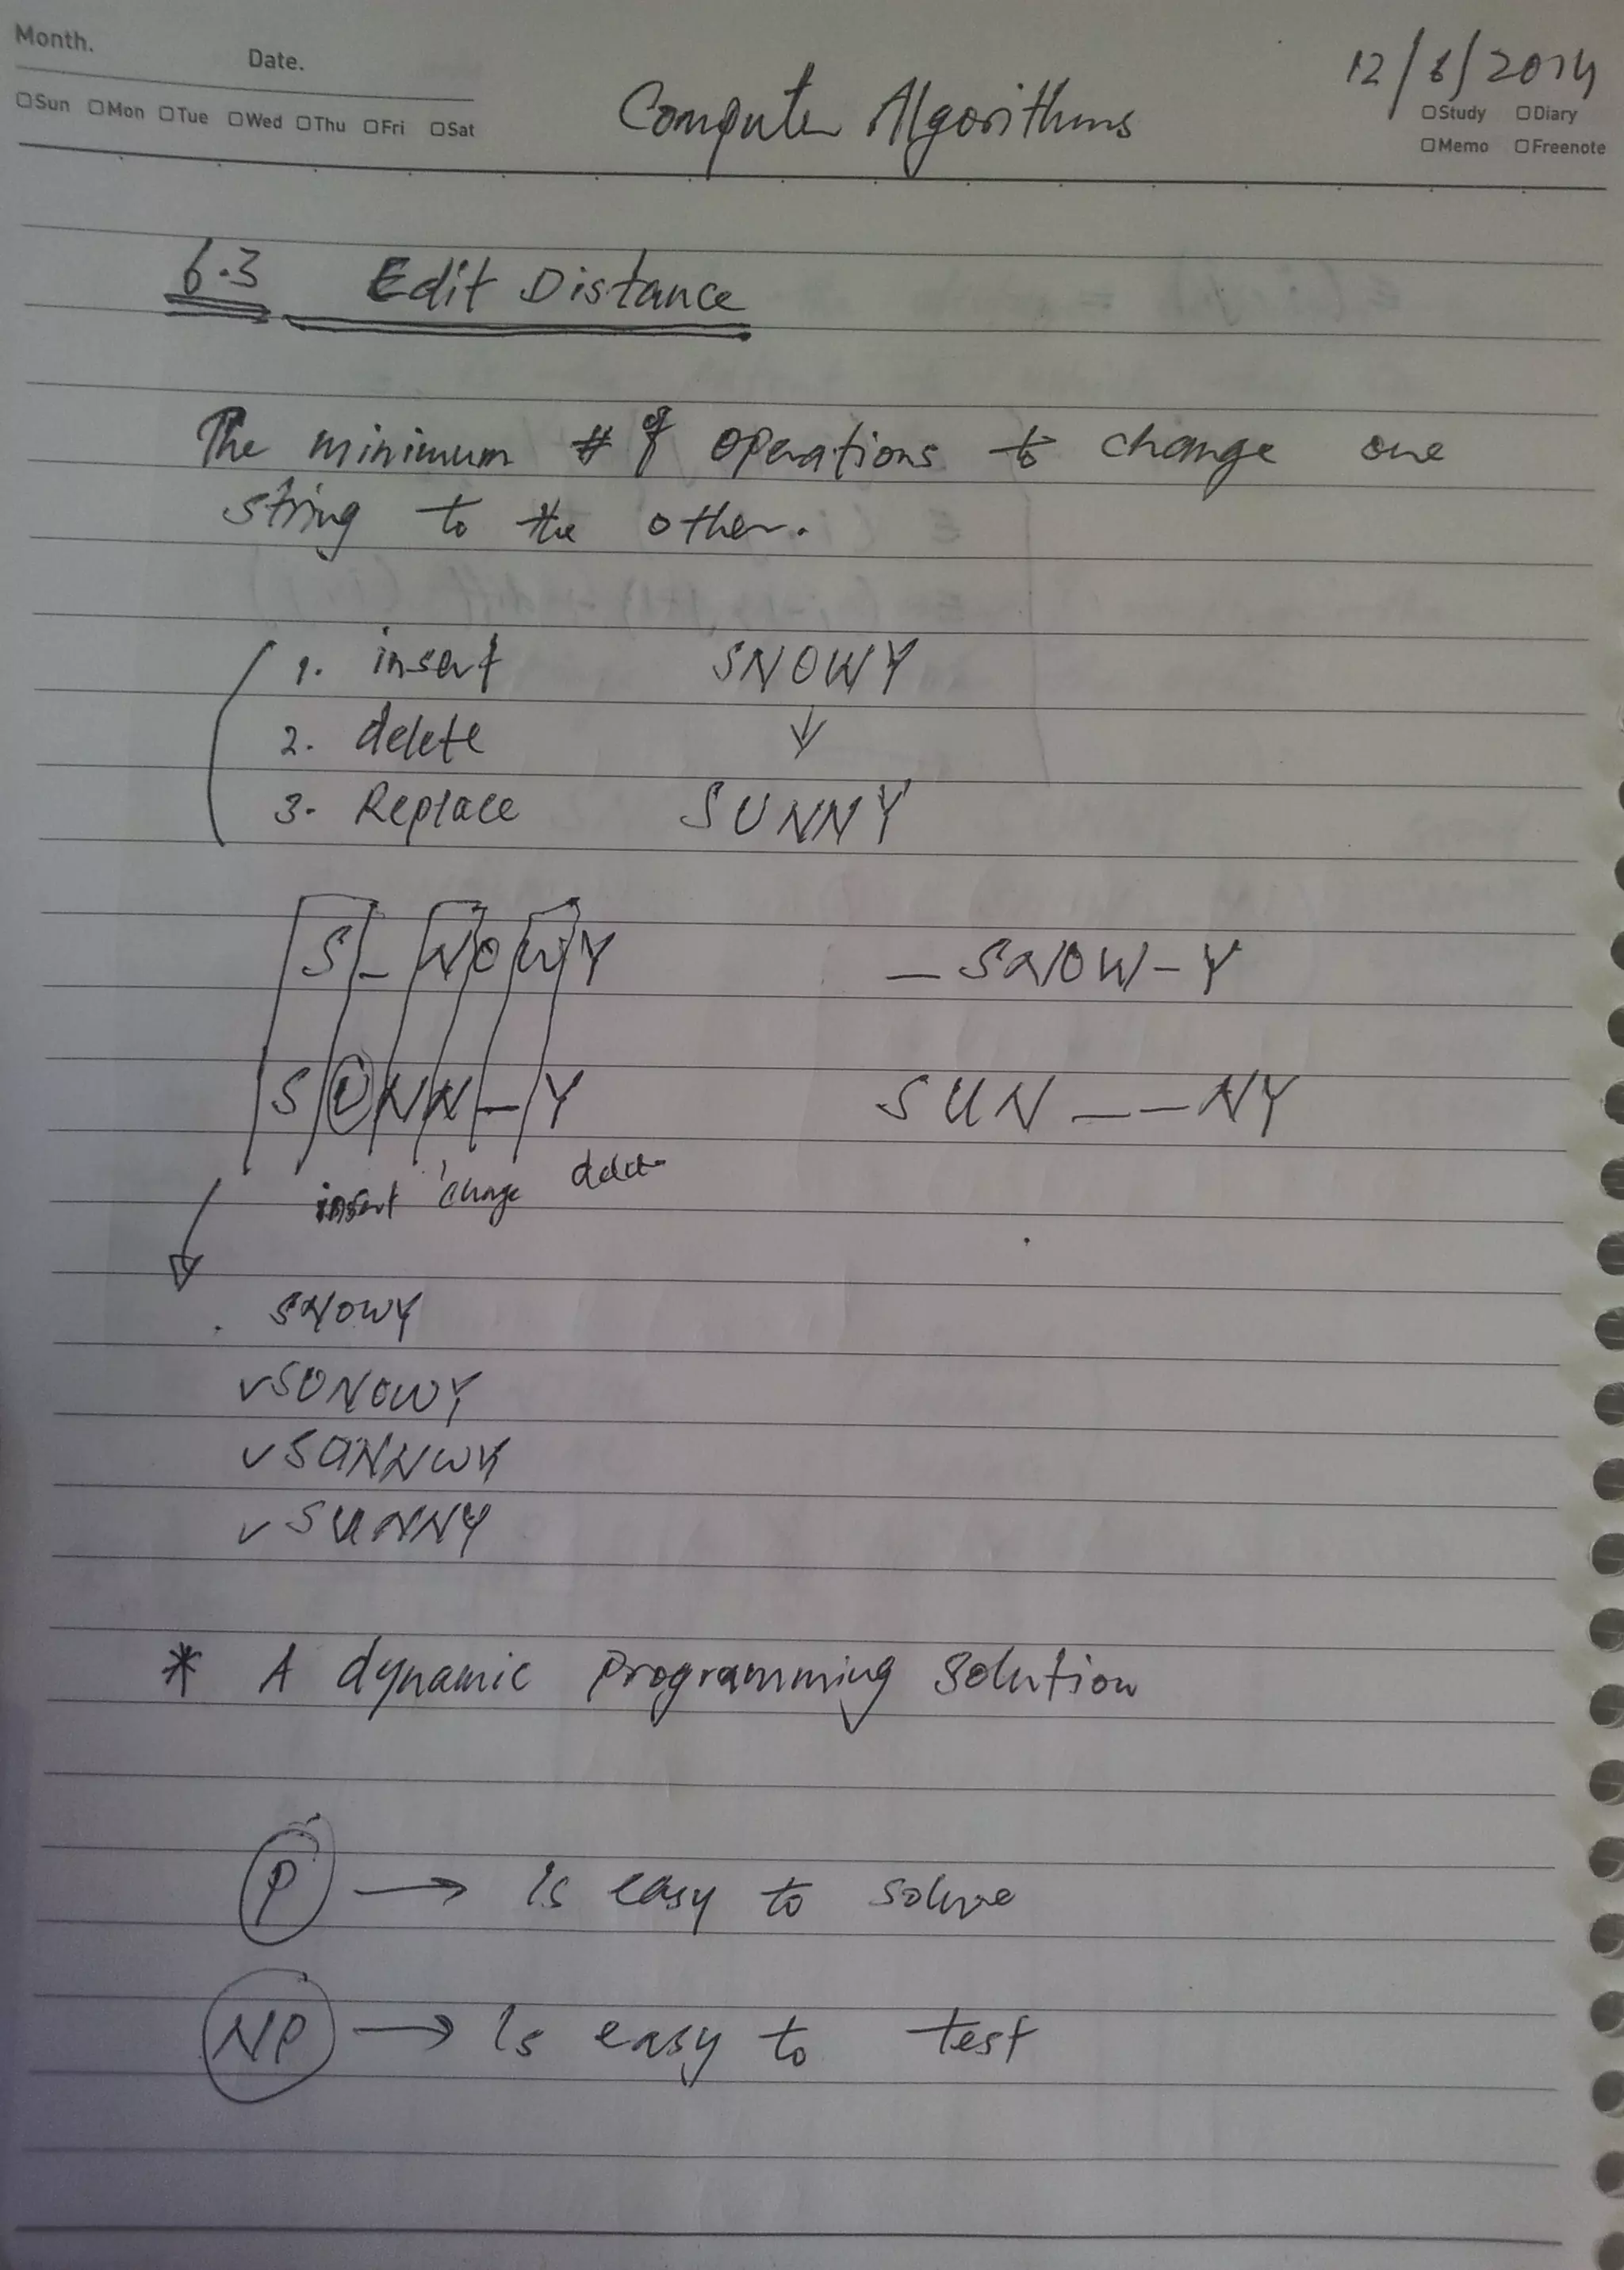 Month.
Date.
Sun Mon Tue Wed Thu Fri Sat
Computer Algorithms
12/6/2014
Study Diary
Memo Freenote
6.3 Edit Distance
The minimum # of operations to change one
string to the other.
1. insert SNOWY
2. delete ↓
3. Replace SUNNY
S_NOWY _SNOW-Y
SUNN_Y SUN__-NY
insert change delete
SNOWY
✓SUNOWY
✓SUNNWY
✓SUNNY
* A dynamic programming solution
P → Is easy to solve
NP → Is easy to test